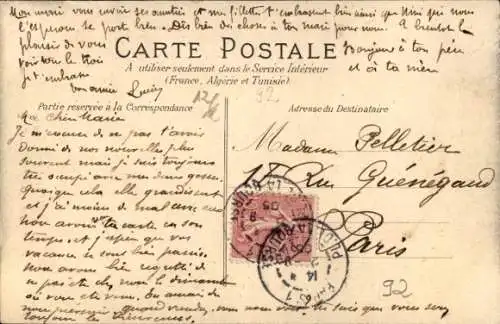 Mon mari vous envoie ses amitiés et ma fillette t'embrasse bien ainsi que Mimi qui nous
l'espérons se porte bien. Dès bien des choses à ton mari pour nous. A bientôt le
plaisir de vous
voir tous les trois
je t'embrasse
ton amie
Bonjours à ton père
et à ta mère
CARTE POSTALE
A utiliser seulement dans le Service Intérieur
(France, Algérie et Tunisie)
92
Partie réservée à la Correspondance
Adresse du Destinataire
Ma Chère Marie
Je m'excuse de ne pas t'avoir
donné de nos nouvelles plus
souvent mais je suis toujours
très occupée avec mes deux gosses.
Quoique cela elle grandissent
et j'ai moins de mal avec.
nous avons eu ta carte en son
temps. et j'espère que vos
vacances se sont bien passées.
Nous avons bien regretté de
ne pas être chez nous le dimanche
où vous êtes venu.
nous prévenir quand vous viendrez, nous
toujours
Madame Pelletier
15 Rue Guénégaud
Paris
92